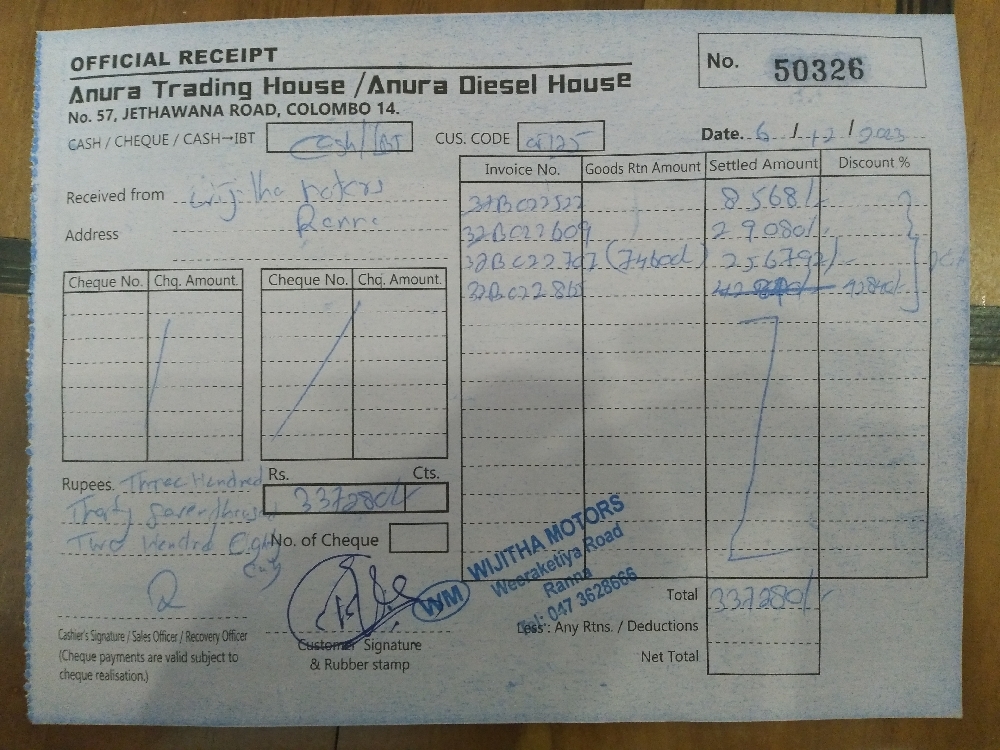 OFFICIAL RECEIPT
Anura Trading House / Anura Diesel House
No. 57, JETHAWANA ROAD, COLOMBO 14.
No. 50326
CASH / CHEQUE / CASH→IBT Cash/IBT
CUS. CODE
Date. 6 / 12 / 2023
Received from Wijitha Motors
Ranna
Address
Invoice No. Goods Rtn Amount Settled Amount Discount %
32BC22522 8568/-
32BC22609 29080/-
32BC22707 (7460d) 256792/-
32BC22860 42840/-
Cheque No. Chq. Amount. Cheque No. Chq. Amount.
Rupees. Three Hundred
Thirty Seven thousand
Two Hundred Eighty
Only
Rs. Cts.
337280/-
No. of Cheque
WM WIJITHA MOTORS
Weeraketiya Road
Ranna
Tel: 047 3628666
Total 337280/-
Less: Any Rtns. / Deductions
Net Total
Cashier's Signature / Sales Officer / Recovery Officer
(Cheque payments are valid subject to
cheque realisation.)
Customer Signature
& Rubber stamp